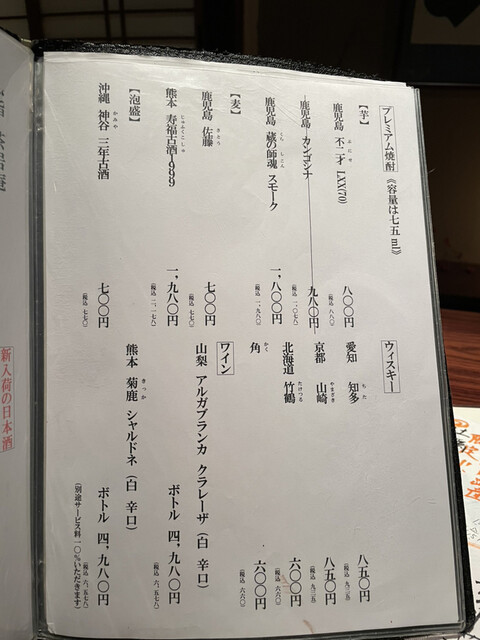 プレミアム焼酎 《容量は七五ml》
【芋】
鹿児島 不二才 LXX(70) 八〇〇円
ふにせ
(税込 八八〇)
鹿児島 カンゴシナ 九八〇円
(税込 一、〇七八)
鹿児島 蔵の師魂 スモーク 一、八〇〇円
くら しこん
(税込 一、九八〇)
【麦】
鹿児島 佐藤 七〇〇円
さとう
(税込 七七〇)
熊本 寿福古酒1999 一、九八〇円
じゅふくこしゅ
(税込 二、一七八)
【泡盛】
沖縄 神谷 三年古酒 七〇〇円
かみや
(税込 七七〇)
ウィスキー
愛知 知多 八五〇円
ちた
(税込 九三五)
京都 山崎 八五〇円
やまざき
(税込 九三五)
北海道 竹鶴 六〇〇円
たけつる
(税込 六六〇)
角 六〇〇円
かく
(税込 六六〇)
ワイン
山梨 アルガブランカ クラレーザ (白 辛口) ボトル 四、九八〇円
(税込 六、五七八)
熊本 菊鹿 シャルドネ (白 辛口) ボトル 四、九八〇円
きっか
(税込 六、五七八)
(別途サービス料一〇%いただきます)
新入荷の日本酒